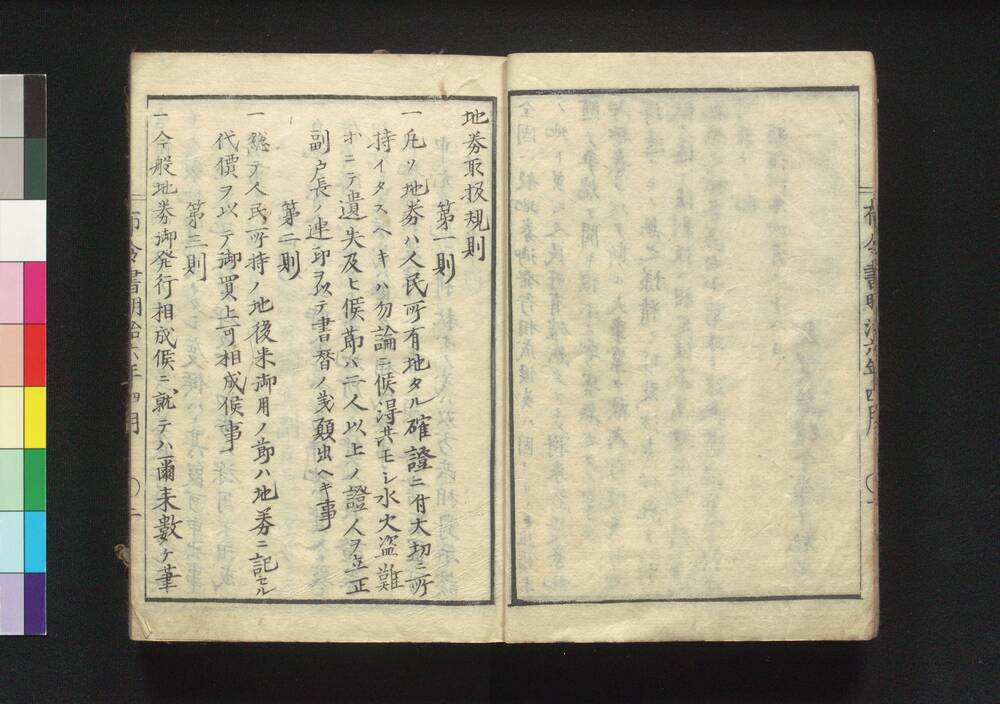 地券取扱規則
第一則
一凡ソ地券ハ人民所有地タル確證ニ付大切ニ所
持イタスヘキハ勿論ニ候得共モシ水火盗難
ホニテ遺失及ヒ候節ハ二人以上ノ證人ヲ立正
副戸長ノ連印ヲ以テ書替ノ義願出ヘキ事
第二則
一總テ人民所持ノ地後来御用ノ節ハ地券ニ記セル
代價ヲ以テ御買上可相成候事
第三則
一今般地券御発行相成候ニ就テハ爾来数ヶ筆
布令書明治六年四月 〇一
布令書明治六年四月